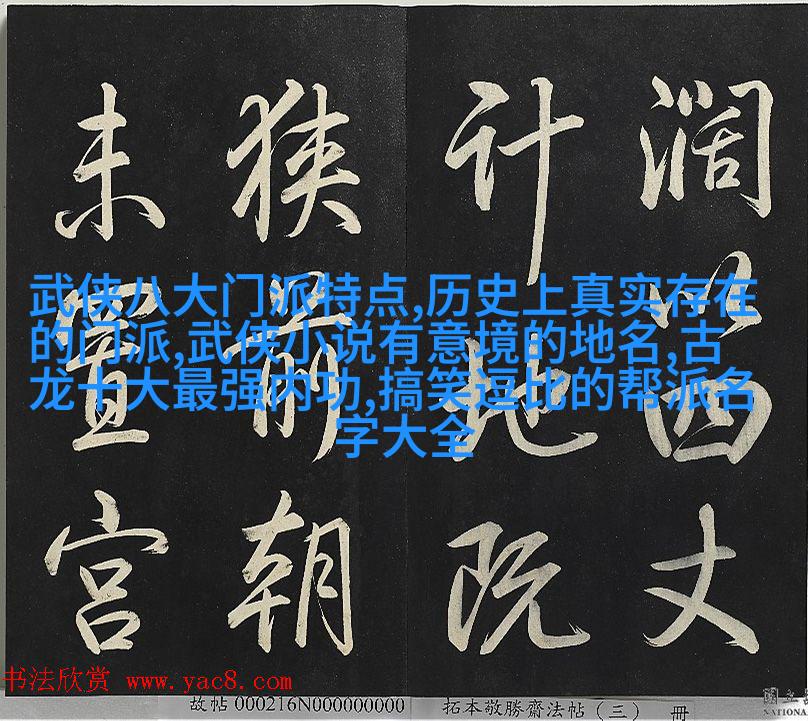 濶以四丈
計地既
狹前朝
未置宫
武侠八大门派特点,历史上真实存在
的门派,武侠小说有意境的地名,古
龙十大最强内功,搞笑逗比的帮派名
字大全
书法欣赏 www.yac8.com
故帖 000216N000000000 拓本敬勝齋法帖（三） 冊
國立
NATIONA